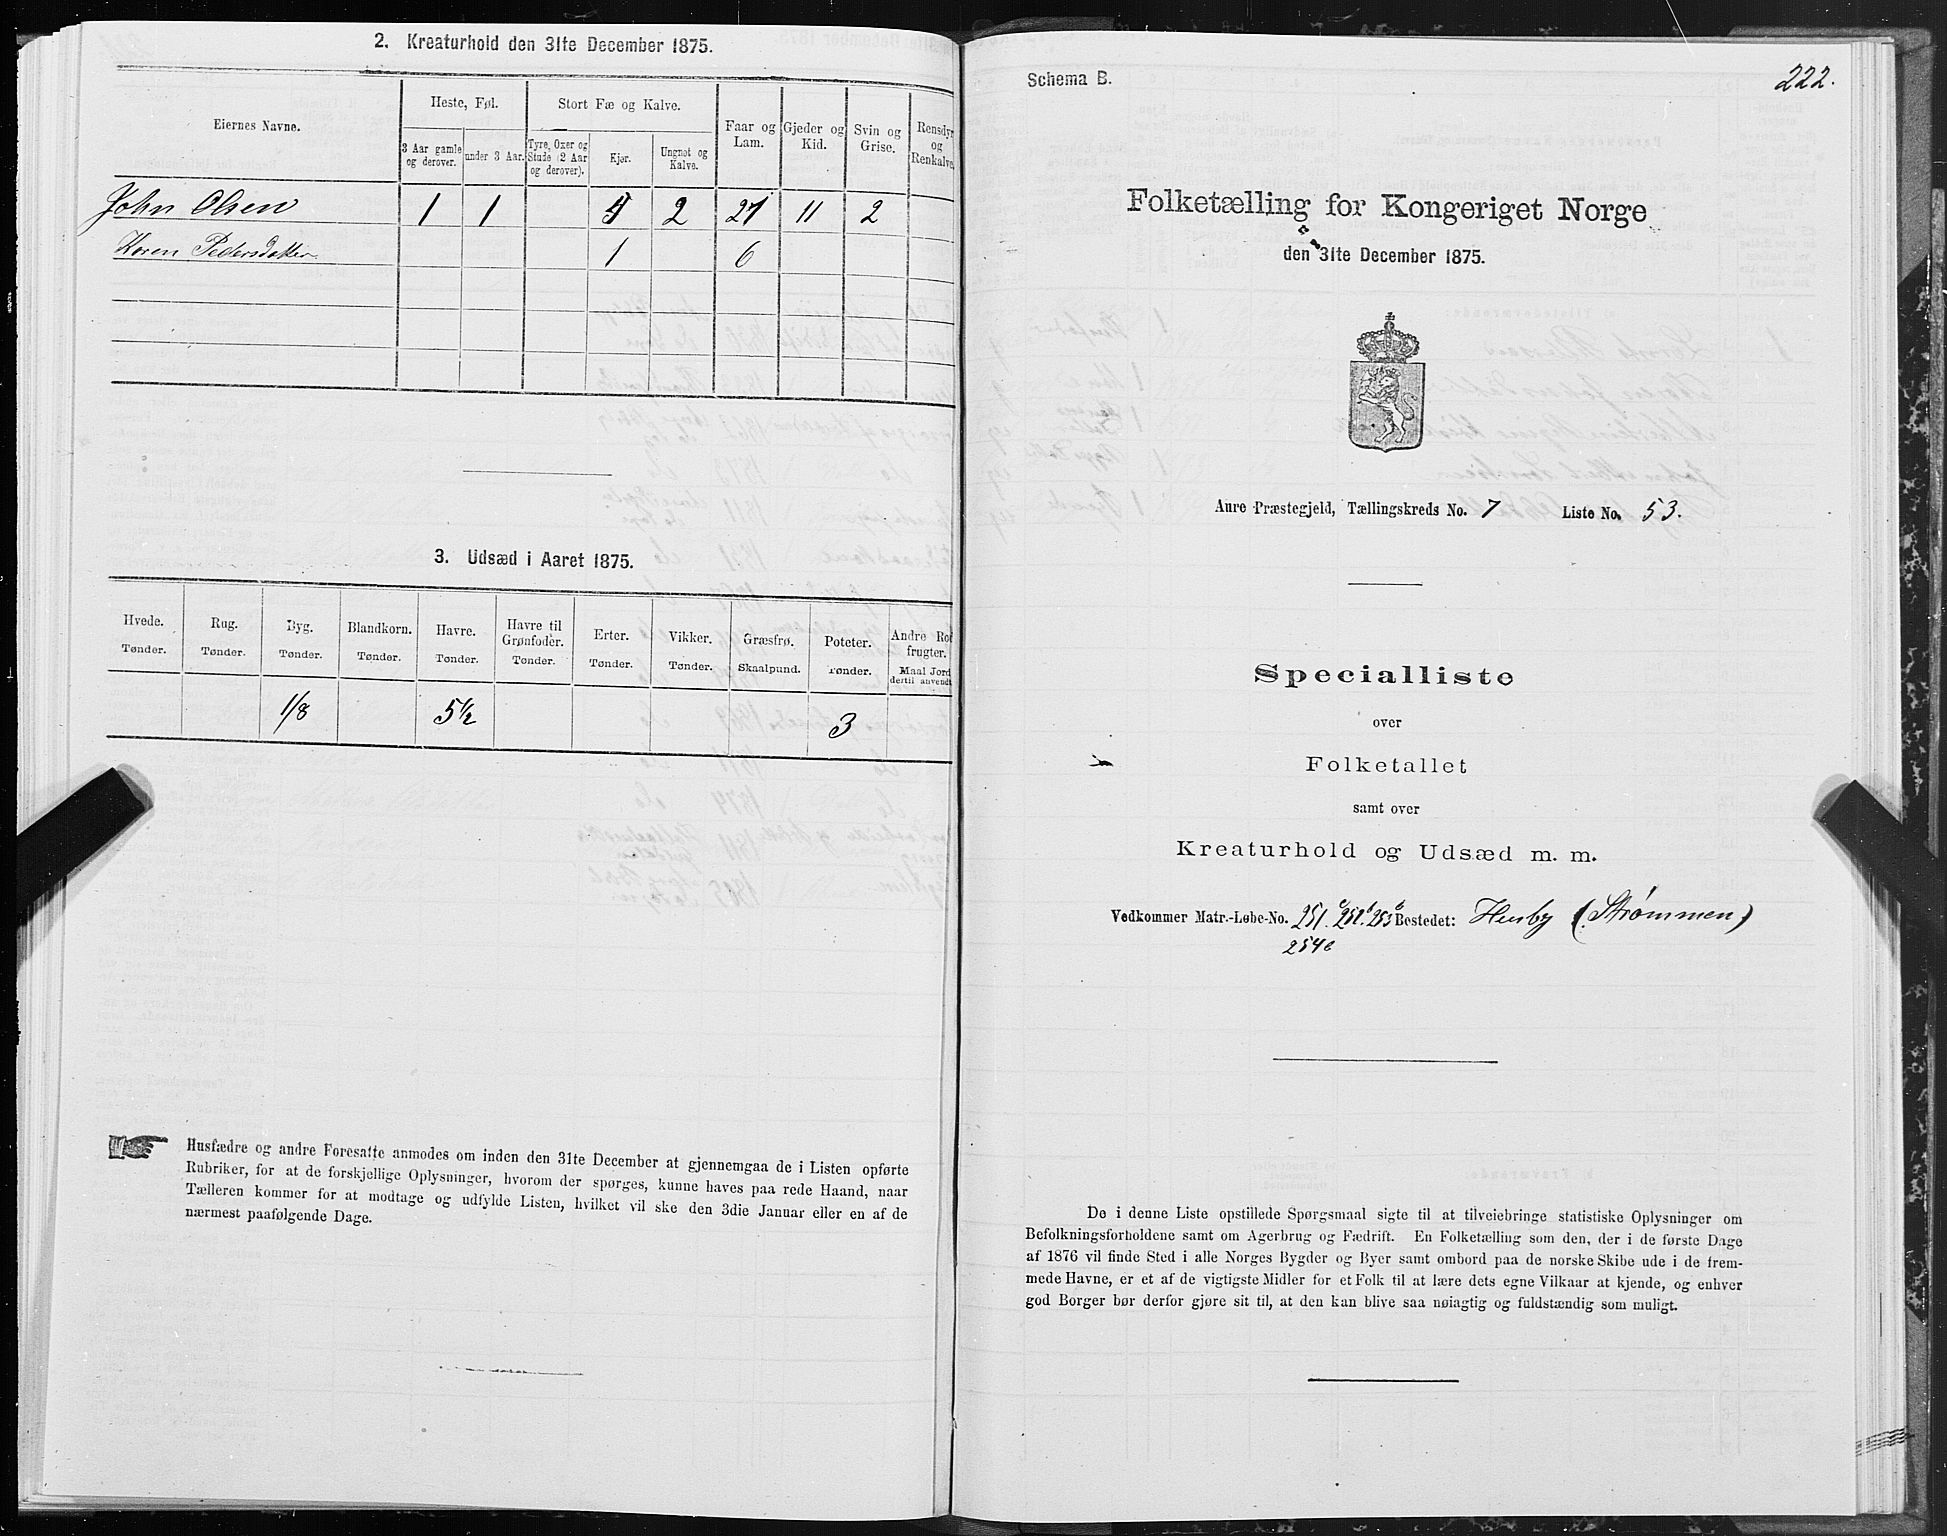 2. Kreaturhold den 31te December 1875.
Eiernes Navne.
Heste, Føl.
Stort Fæ og Kalve.
Faar og Lam.
Gjeder og Kid.
Svin og Grise.
Rensdyr og Renkalve.
3 Aar gamle og derover.
under 3 Aar.
Tyre, Oxer og Stude (2 Aar og derover).
Kjør.
Ungnøt og Kalve.
John Olsen 1 1 2 27 11 2
Karen Pedersdatter 1 6
3. Udsæd i Aaret 1875.
Hvede. Rug. Byg. Blandkorn. Havre. Havre til Grønfoder. Erter. Vikker. Græsfrø. Poteter. Andre Rod frugter.
Tønder. Tønder. Tønder. Tønder. Tønder. Tønder. Tønder. Tønder. Skaalpund. Tønder. Maal Jord dertil anvendt
1/8 5 1/2 3
Husfædre og andre Foresatte anmodes om inden den 31te December at gjennemgaa de i Listen opførte
Rubriker, for at de forskjellige Oplysninger, hvorom der spørges, kunne haves paa rede Haand, naar
Tælleren kommer for at modtage og udfylde Listen, hvilket vil ske den 3die Januar eller en af de
nærmest paafølgende Dage.
Schema B.
222.
Folketælling for Kongeriget Norge
den 31te December 1875.
Aure Præstegjeld, Tællingskreds No. 7 Liste No. 53.
Specialliste
over
Folketallet
samt over
Kreaturhold og Udsæd m. m.
Vedkommer Matr.-Løbe-No. 251. 252. 253 Bestedet: Henby (Strømmen)
254
De i denne Liste opstillede Spørgsmaal sigte til at tilveiebringe statistiske Oplysninger om
Befolkningsforholdene samt om Agerbrug og Fædrift. En Folketælling som den, der i de første Dage
af 1876 vil finde Sted i alle Norges Bygder og Byer samt ombord paa de norske Skibe ude i de frem-
mede Havne, er et af de vigtigste Midler for et Folk til at lære dets egne Vilkaar at kjende, og enhver
god Borger bør derfor gjøre sit til, at den kan blive saa nøiagtig og fuldstændig som muligt.